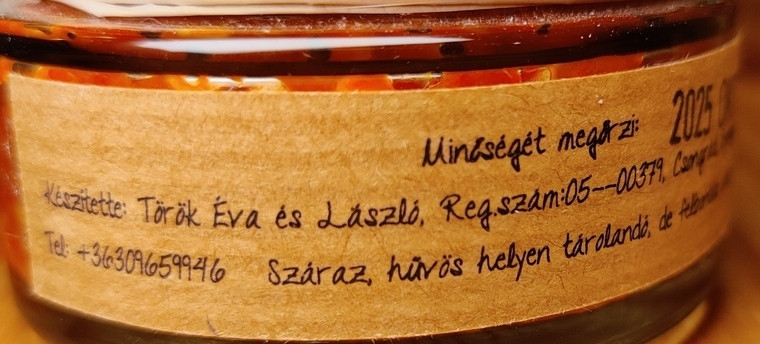 Minőségét megőrzi: 2025
Készítette: Török Éva és László, Reg.szám:05--00379,
Tel: +36309659946 Száraz, hűvös helyen tárolandó, de